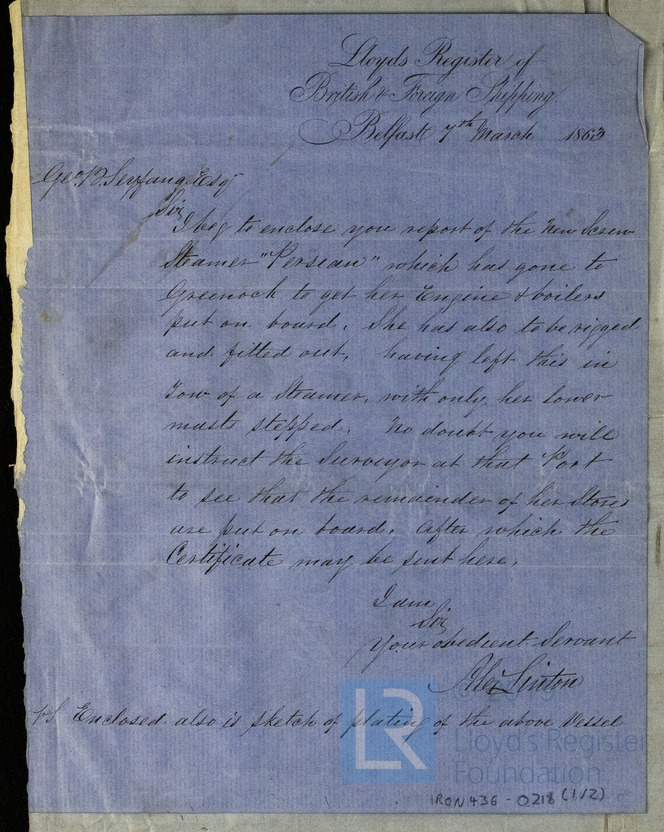 Lloyds Register of
British & Foreign Shipping.
Belfast 7th March 1863
Geo. B. Seyfang Esqr
Sir
I beg to enclose you report of the New Screw
Steamer "Persian" which has gone to
Greenock to get her Engine & boilers
put on board. She has also to be rigged
and fitted out, having left this in
Tow of a Steamer, with only her lower
masts stepped. No doubt you will
instruct the Surveyor at that Port
to see that the remainder of her Stores
are put on board. After which the
Certificate may be sent here.
I am
Sir
Your obedient Servant
Alex Linton
PS Enclosed also is sketch of plating of the above Vessel
LR
Lloyd's Register
Foundation
IRON436 - 0218 (1/2)